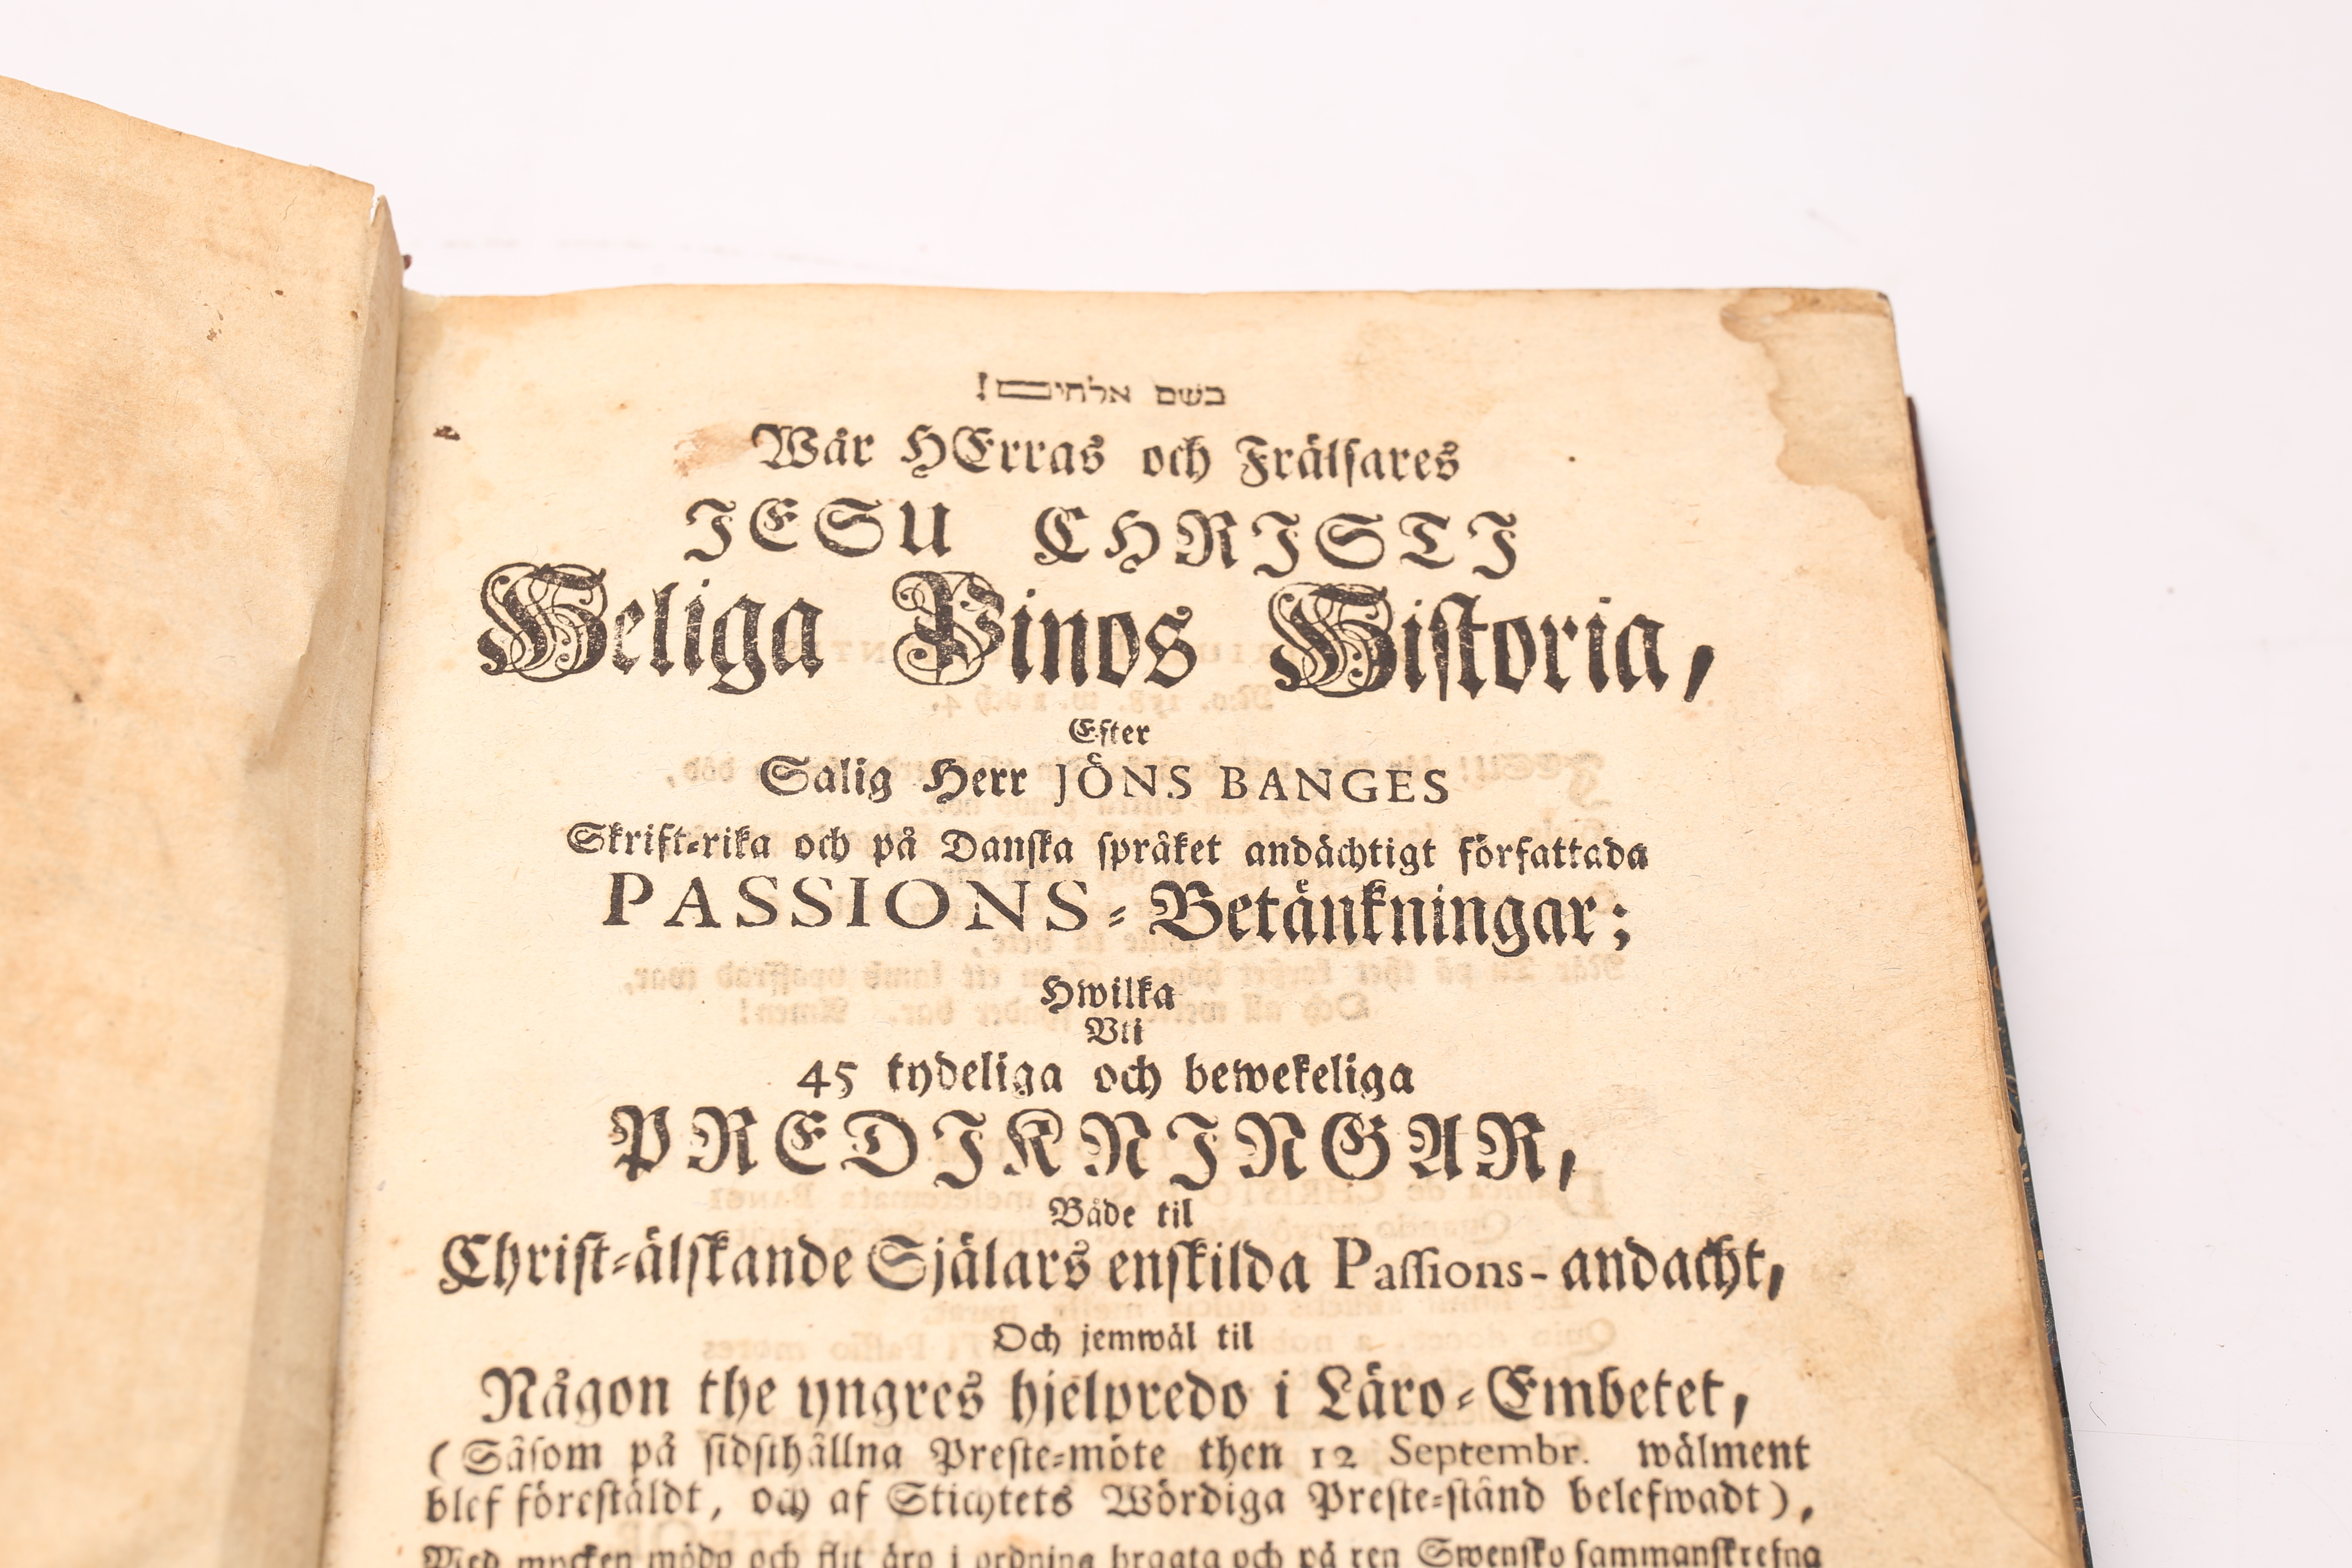 בשם אלהים!
Wår HErras och Frälsares
JESU CHRISTI
Heliga Pinos Historia,
Efter
Salig Herr JÖNS BANGES
Skrift-rika och på Danska språket andächtigt författada
PASSIONS-Betänkningar;
Hwilka
Uti
45 tydeliga och bewekeliga
PREDIKNINGAR,
Både til
Christ-älskande Själars enskilda Passions-andacht,
Och jemwäl til
Någon the yngres hjelpredo i Läro-Embetet,
(Såsom på sidsthållna Preste-möte then 12 Septembr. wälment
blef förestäldt, och af Stichtets Wördiga Preste-stånd belefwadt),
Med mycken mödo och flit äro i ordning bragta och på ren Swensko sammanskrefna